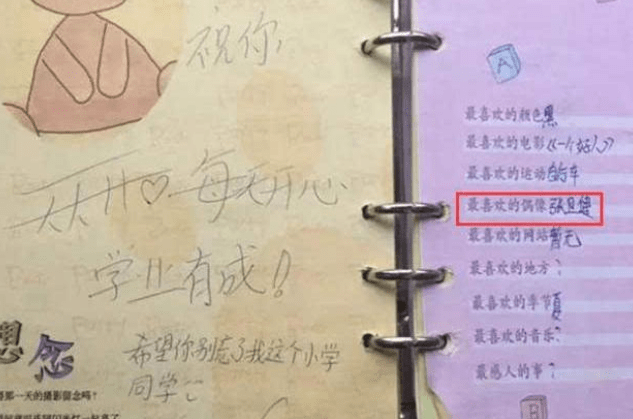 祝你,
天天开♡每天开心
学业有成!
想念
那一天的摄影留念吗?
希望你别忘了我这个小学
同学
A
最喜欢的颜色黑
最喜欢的电影《一个好人》
最喜欢的运动自行车
最喜欢的偶像张卫健
最喜欢的网站暂无
最喜欢的地方?
最喜欢的季节夏
最喜欢的音乐?
最感人的事?